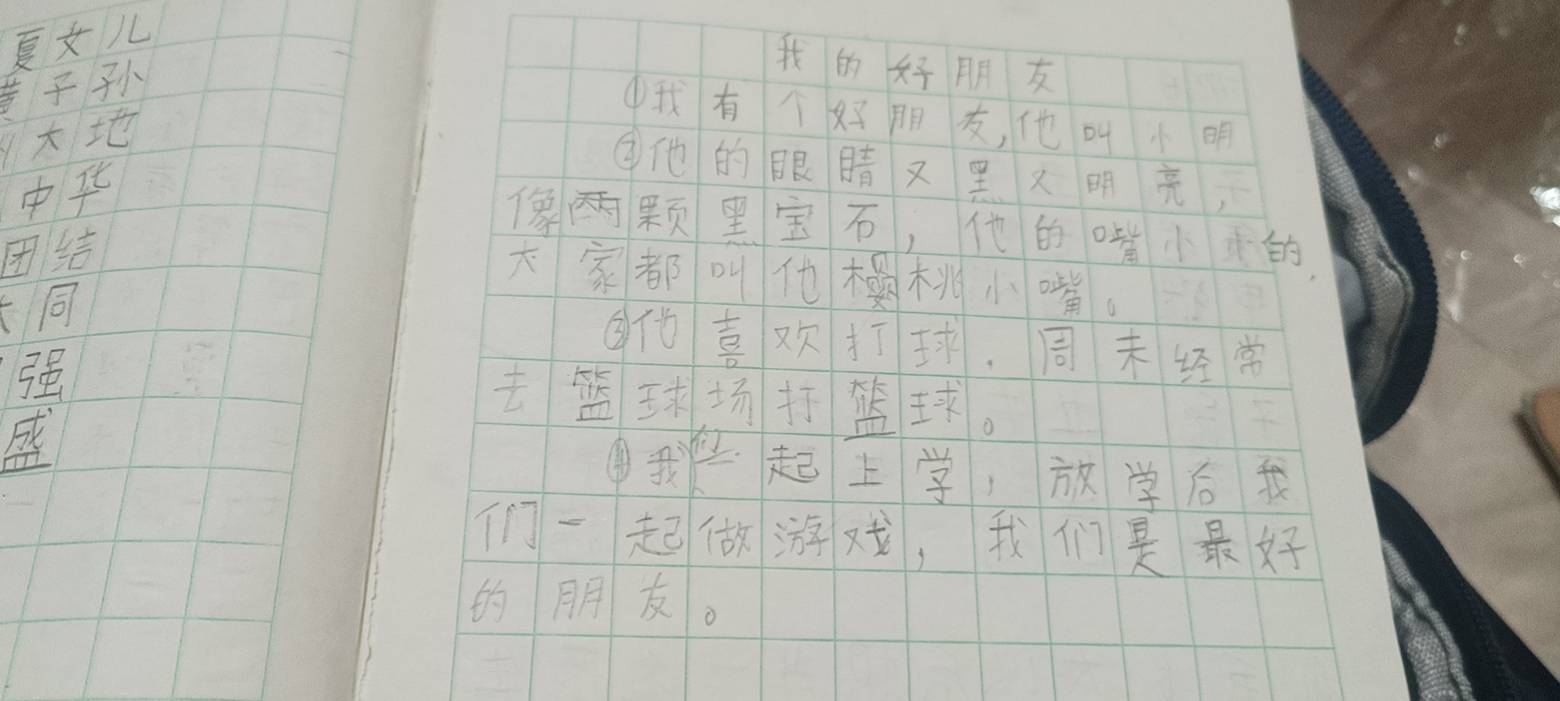 夏女儿
黄子孙
大地
中华
团结
同
强
盛
我的好朋友
①我有个好朋友,他叫小明
②他的眼睛又黑又明亮,
像两颗黑宝石,他的嘴小小的,
大家都叫他樱桃小嘴。
③他喜欢打球.周末经常
去篮球场打篮球。
④我们一起上学,放学后我
们一起做游戏,我们是最好
的朋友。